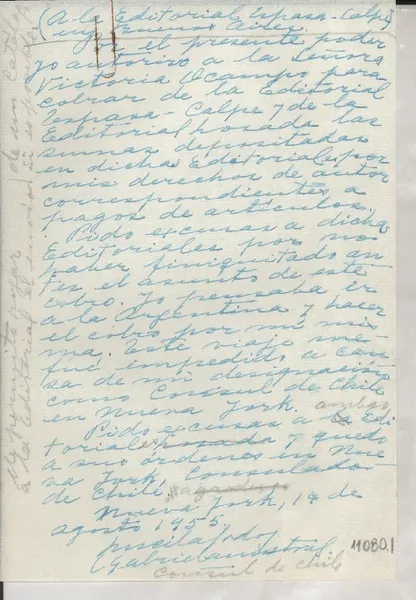 (A la Editorial Espasa-Calpe)
en Buenos Aires.
Por el presente poder
yo autorizo a la Señora
Victoria Ocampo para
cobrar de la Editorial
Espasa-Calpe y de la
Editorial Losada las
sumas depositadas
en dichas Editoriales por
mis derechos de autor
correspondientes a
pagos de artículos.
Pido excusas a dichas
Editoriales por no
haber finiquitado an-
tes el asunto de este
cobro. Yo pensaba ir
a la Argentina y hacer
el cobro por mí mis-
ma. Este viaje me
fué impedido a cau-
sa de mi designación
como Consul de Chile
en Nueva York.
Pido excusas a ambas
la Edi-
toriales Losada y quedo
a sus órdenes en Nue-
va York, Consulado
de Chile.
Nueva York, 14 de
agosto 1955.
Lucila Godoy
(Gabriela Mistral)
Consul de Chile
11080.1
Me permito rogar
a la Editorial el envío de un Catál.
si es posible